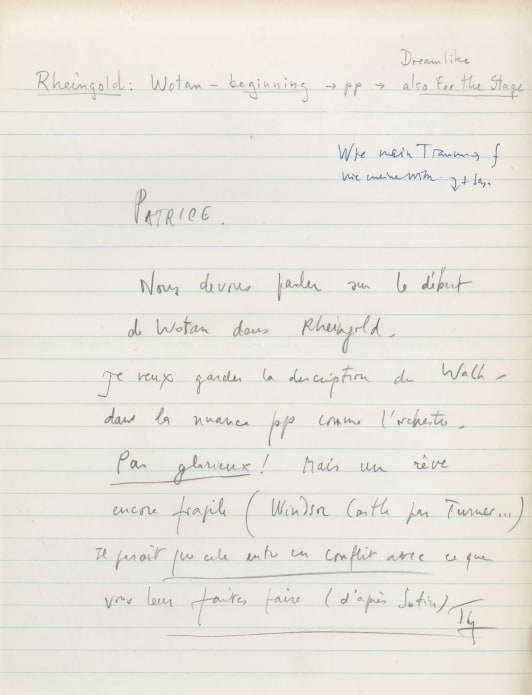 Dreamlike
Rheingold: Wotan – beginning → pp → also for the stage
Wie mein Traum
wie mein
PATRICE.
Nous devons parler sur le début
de Wotan dans Rheingold.
Je veux garder la description du Walh –
dans la nuance pp comme l'orchestre.
Pas glorieux! Mais un rêve
encore fragile (Windsor Castle par Turner...)
Il que cela entre en conflit avec ce que
vous leur faites faire (d'après